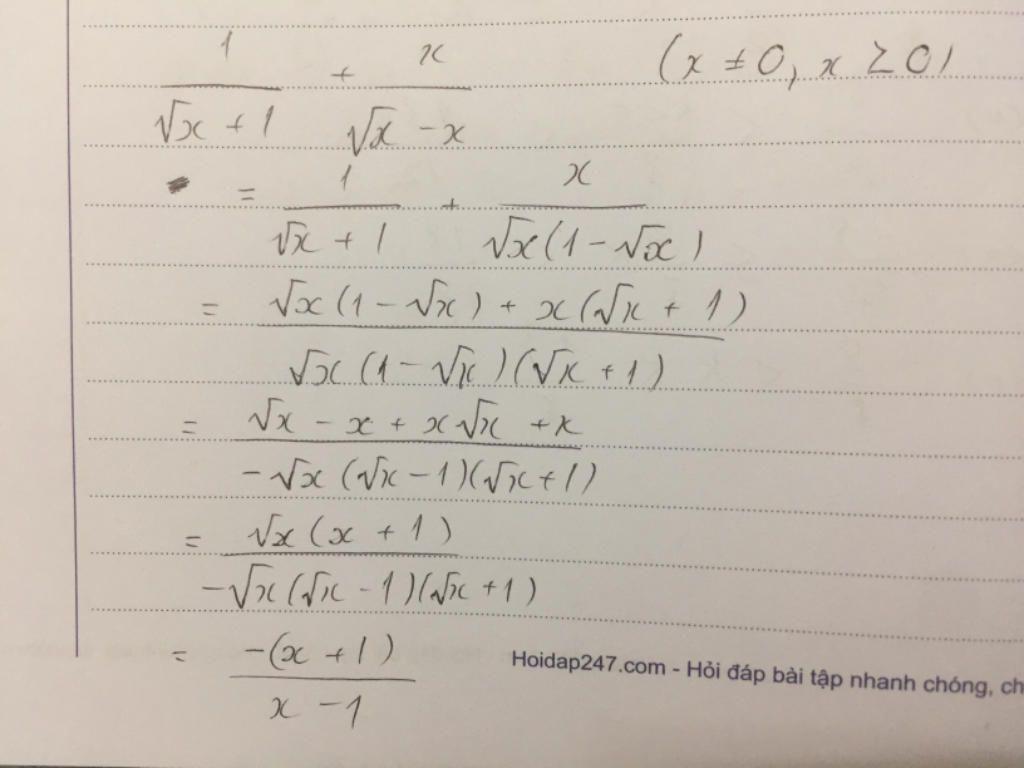 1/(√x + 1) + x/(√x - x) (x ≠ 0, x ≥ 0)
= 1/(√x + 1) + x/(√x(1 - √x))
= (√x(1 - √x) + x(√x + 1))/(√x(1 - √x)(√x + 1))
= (√x - x + x√x + x)/(-√x(√x - 1)(√x + 1))
= (√x(x + 1))/(-√x(√x - 1)(√x + 1))
= (-(x + 1))/(x - 1)
Hoidap247.com - Hỏi đáp bài tập nhanh chóng, ch